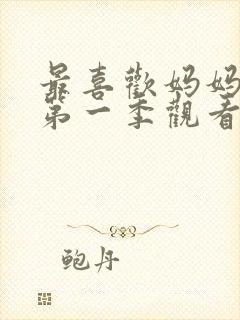 最喜歡妈妈
第一季觀看
鲍丹